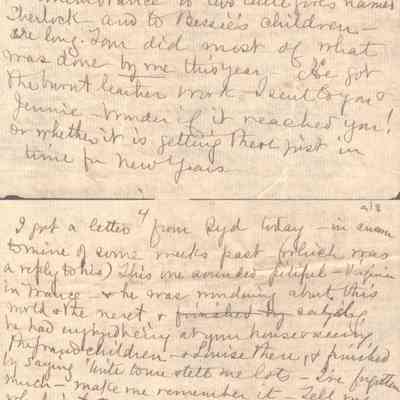 remembrance to
Sherlock and to Bessie's children -
are long. Tom did most of what
was done by me this year. He got
the burnt leather work I sent to you &
Jennie - wonder if it reached you!
or whether it is getting there just in
time for New Years
4
I got a letter from Syd today - in answer
to mine of some weeks past (which was
a reply to his) This one sounded pitiful -
in France - & he was wondering about this
world & the next & finished by saying
he had enjoyed being at your house & seeing
the grand children - & Louise there, & finished
by saying "Write to me & tell me lots - I've forgotten
much - make me remember it - tell me